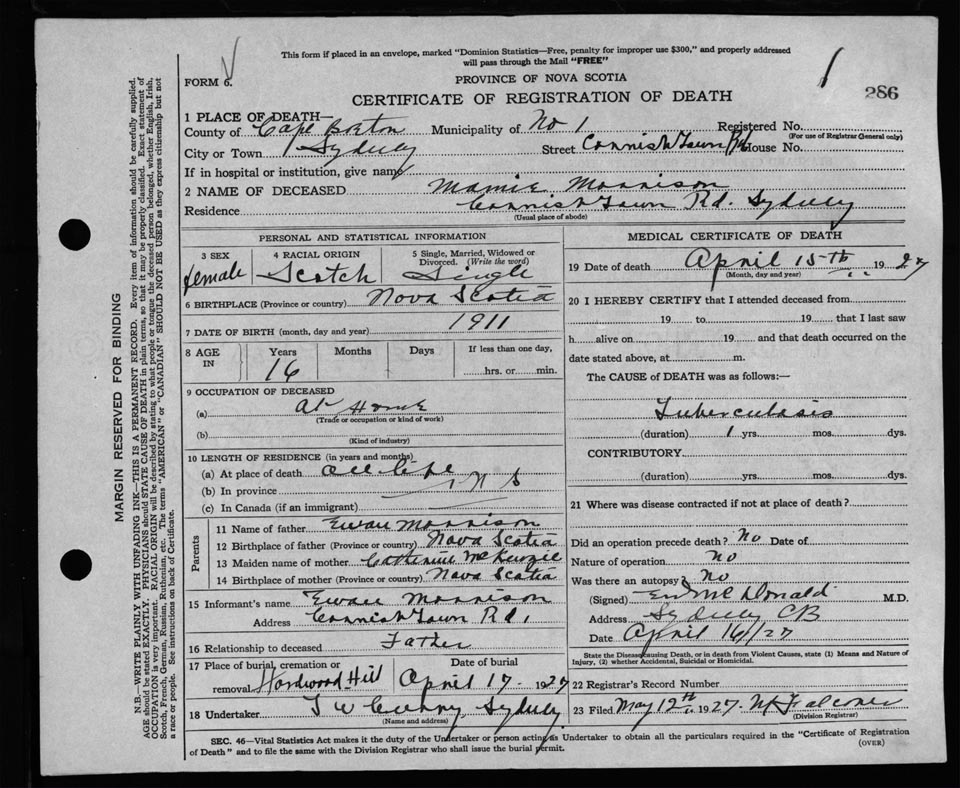 This form if placed in an envelope, marked "Dominion Statistics—Free, penalty for improper use $300," and properly addressed
will pass through the Mail "FREE"
FORM 6.
PROVINCE OF NOVA SCOTIA
1
286
CERTIFICATE OF REGISTRATION OF DEATH
1 PLACE OF DEATH—
County of Cape Breton Municipality of No 1 Registered No.
(For use of Registrar General only)
City or Town Sydney Street Cornish Town Rd House No.
If in hospital or institution, give name
2 NAME OF DECEASED Mamie Morrison
Residence Cornish Town Rd. Sydney
(Usual place of abode)
PERSONAL AND STATISTICAL INFORMATION
3 SEX 4 RACIAL ORIGIN 5 Single, Married, Widowed or Divorced. (Write the word)
female Scotch Single
6 BIRTHPLACE (Province or country) Nova Scotia
7 DATE OF BIRTH (month, day and year) 1911
8 AGE IN Years Months Days If less than one day,
16 hrs. or min.
9 OCCUPATION OF DECEASED
(a) At Home
(Trade or occupation or kind of work)
(b)
(Kind of industry)
10 LENGTH OF RESIDENCE (in years and months)
(a) At place of death all life
(b) In province N S
(c) In Canada (if an immigrant)
Parents
11 Name of father Ewan Morrison
12 Birthplace of father (Province or country) Nova Scotia
13 Maiden name of mother Catherine McKenzie
14 Birthplace of mother (Province or country) Nova Scotia
15 Informant's name Ewan Morrison
Address Cornish Town Rd,
16 Relationship to deceased Father
17 Place of burial, cremation or removal Hardwood Hill
Date of burial April 17 1927
18 Undertaker T W Curry Sydney
(Name and address)
MEDICAL CERTIFICATE OF DEATH
19 Date of death April 15th 1927
(Month, day and year)
20 I HEREBY CERTIFY that I attended deceased from
19 to 19 that I last saw
h alive on 19 and that death occurred on the
date stated above, at m.
The CAUSE of DEATH was as follows:—
Tuberculosis
(duration) 1 yrs. mos. dys.
CONTRIBUTORY
(duration) yrs. mos. dys.
21 Where was disease contracted if not at place of death?
Did an operation precede death? No Date of
Nature of operation No
Was there an autopsy? No
(Signed) McDonald M.D.
Address Sydney CB
Date April 16/27
State the Disease causing Death, or in death from Violent Causes, state (1) Means and Nature of
Injury, (2) whether Accidental, Suicidal or Homicidal.
22 Registrar's Record Number
23 Filed May 12th 1927. Falconer
(Division Registrar)
SEC. 46—Vital Statistics Act makes it the duty of the Undertaker or person acting as Undertaker to obtain all the particulars required in the "Certificate of Registration
of Death" and to file the same with the Division Registrar who shall issue the burial permit.
(OVER)
MARGIN RESERVED FOR BINDING
N.B.—WRITE PLAINLY WITH UNFADING INK—THIS IS A PERMANENT RECORD. Every item of information should be carefully supplied.
AGE should be stated EXACTLY. PHYSICIANS should STATE CAUSE OF DEATH in plain terms, so that it may be properly classified. Exact statement of
OCCUPATION is very important. RACIAL ORIGIN will be described by stating to what people or tongue the deceased person belonged, whether English, Irish,
Scotch, French, German, Russian, Ruthenian, etc. The terms "AMERICAN" or "CANADIAN" SHOULD NOT BE USED as they express citizenship but not
a race or people. See instructions on back of Certificate.